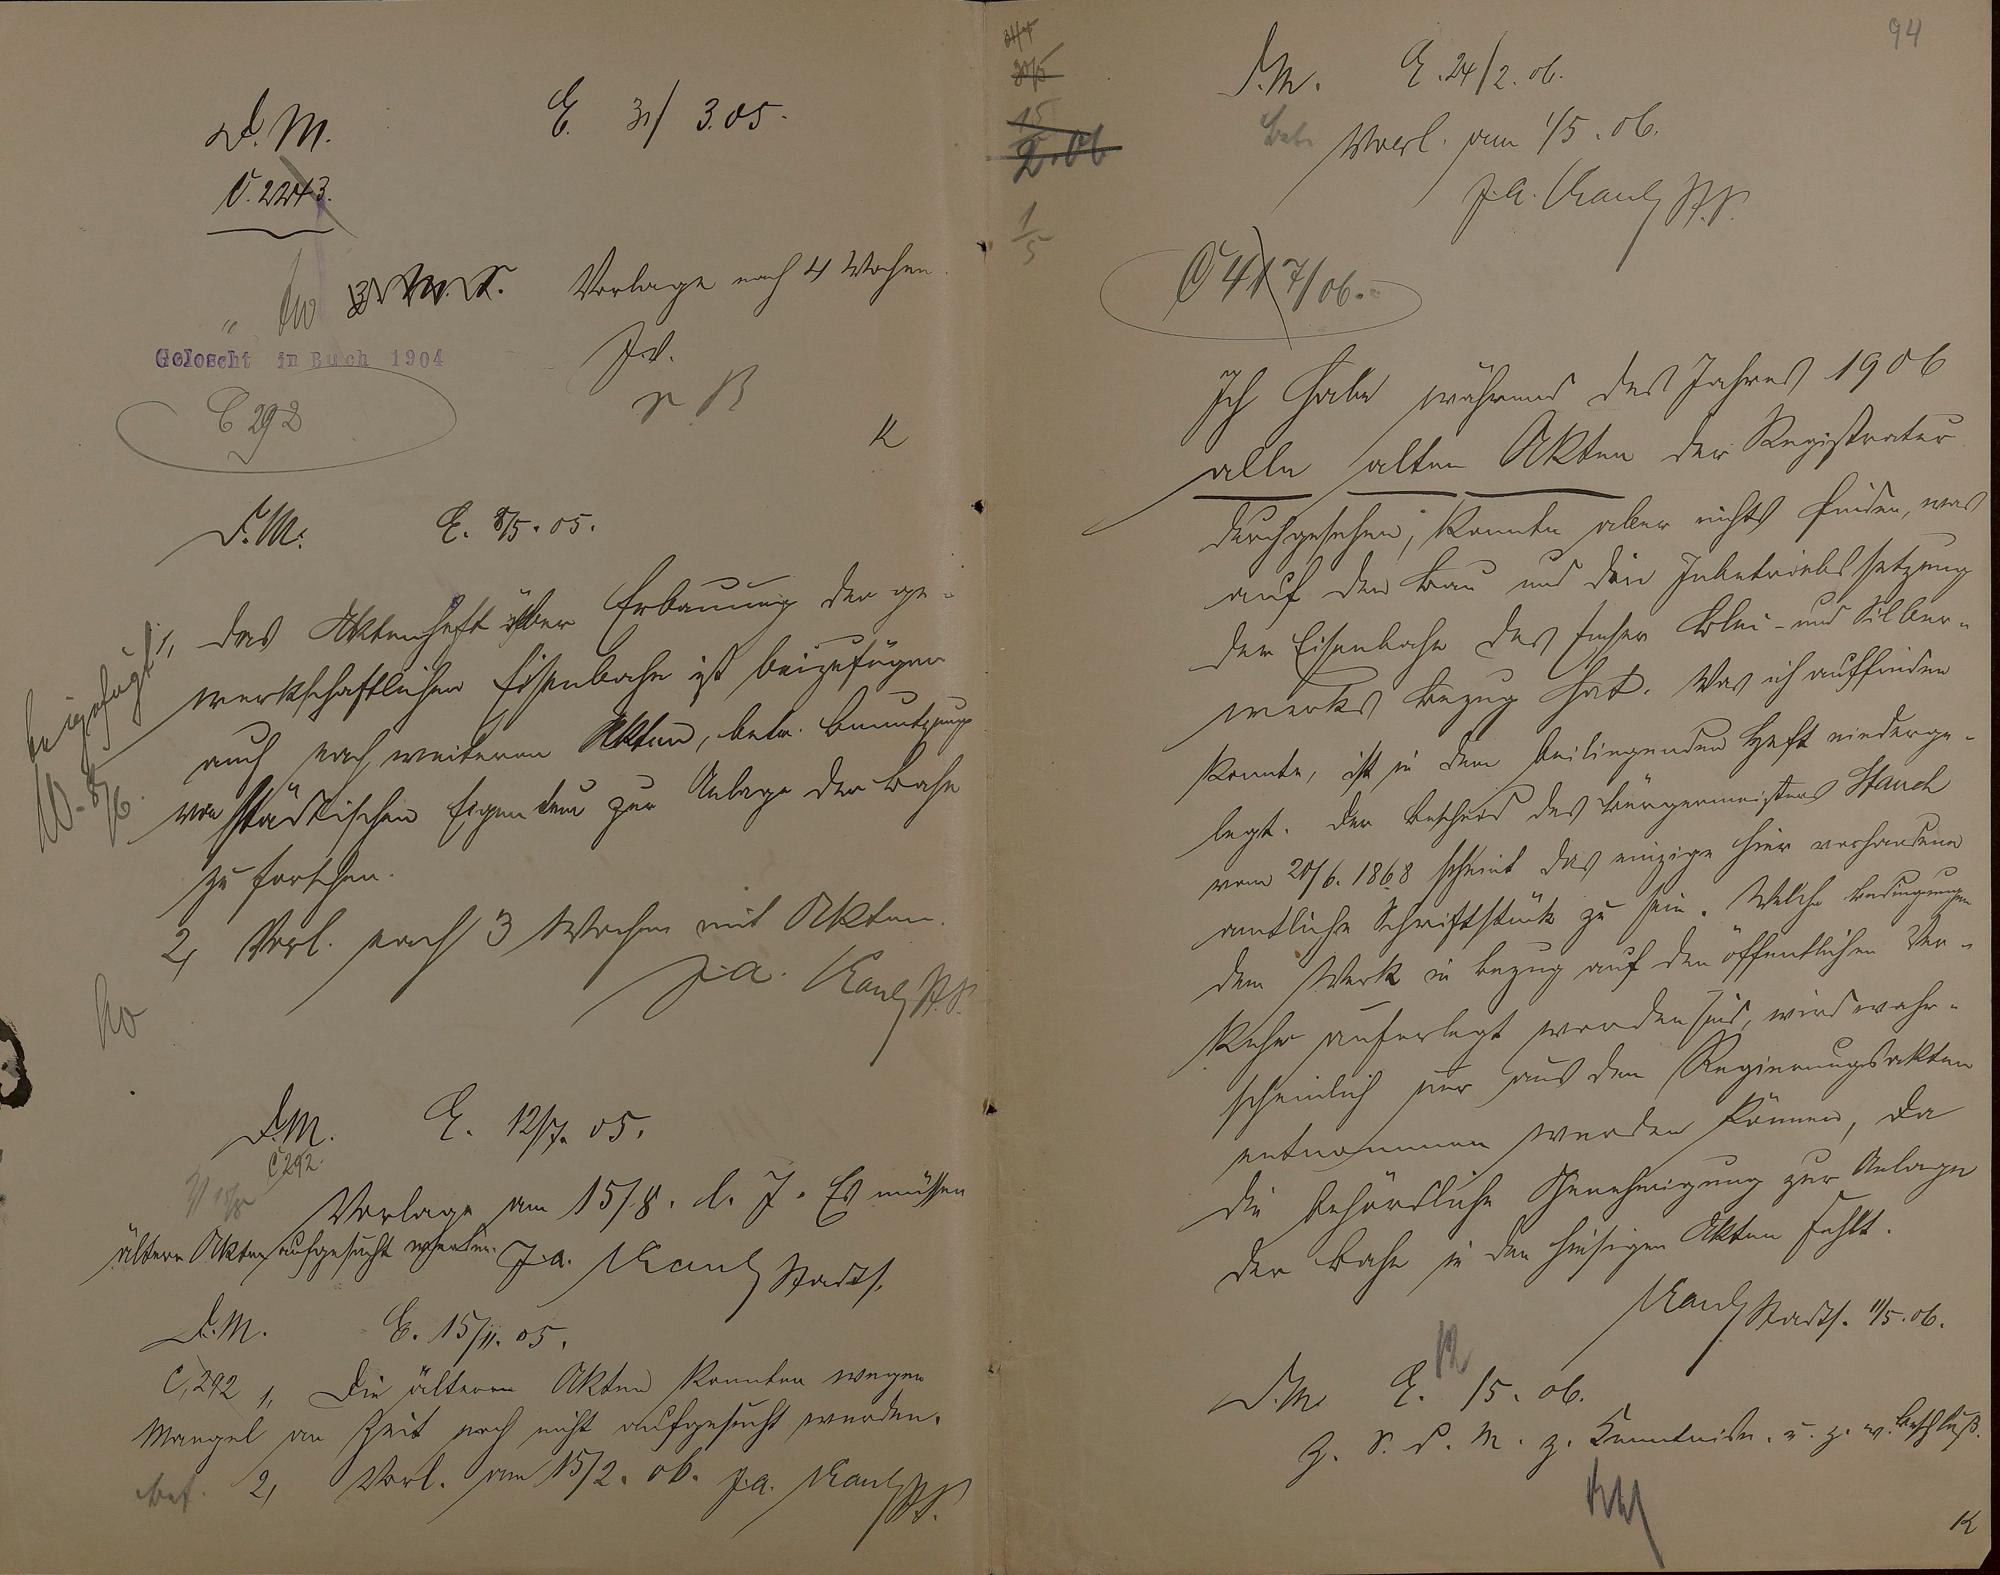 D. M. E. 31/3.05.
C. 2243.
Vorlage nach 4 Wochen.
J. V.
Gelöscht in Buch 1904
C 292
K
D. M. E. 8/5. 05.
1, Das Aktenheft über Erbauung der ge-
werkschaftlichen Eisenbahn ist beizufügen
auch nach weiteren Akten, betr. Benutzung
von städtischem Eigentum zur Anlage der Bahn
zu forschen.
2, Vorl. nach 3 Wochen mit Akten.
J. A. Kaul St. S.
beigefügt
D. M. E. 12/7. 05.
C 292.
Vorlage am 15/8. d. J. Es müssen
ältere Akten aufgesucht werden. J. A. Kaul Stadts.
D. M. E. 15/11. 05.
C, 292 1, Die älteren Akten konnten wegen
Mangel an Zeit noch nicht aufgesucht werden.
2, Vorl. am 15/2. 06. J. A. Kaul St. S.
94
15
2.06
1/5
D. M. E. 24/2. 06.
Vorl. am 1/5. 06.
J. A. Kaul St. S.
C 417/06.
Ich habe während des Jahres 1906
alle alten Akten der Registratur
durchgesehen, konnte aber nichts finden, was
auf den Bau und die Inbetriebssetzung
der Eisenbahn des Emser Blei- und Silber-
werks Bezug hat. Was ich auffinden
konnte, ist in dem beiliegenden Heft niederge-
legt. Der Bescheid des Bürgermeisters Stauch
vom 20/6. 1868 scheint das einzige hier vorhandene
amtliche Schriftstück zu sein. Welche Bedingungen
dem Werk in Bezug auf den öffentlichen Ver-
kehr auferlegt worden sind, wird wahr-
scheinlich nur aus den Regierungsakten
entnommen werden können, da
die behördliche Genehmigung zur Anlage
der Bahn in den hiesigen Akten fehlt.
Kaul Stadts. 11/5. 06.
D. M. E. 12/5. 06.
z. S. d. M. z. Kenntnisn. u. z. w. Beschluß.
K